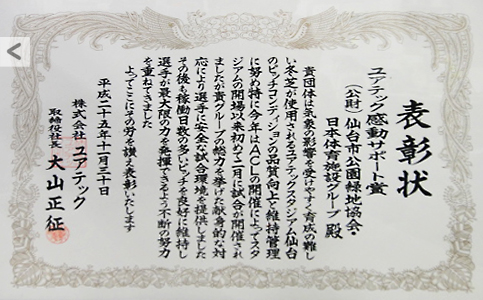 表彰状
ユアテック感動サポート賞
(公財)仙台市公園緑地協会・
日本体育施設グループ 殿
貴団体は気象の影響を受けやすく育成の難し
い冬芝が使用されるユアテックスタジアム仙台
のピッチコンディションの品質向上や維持管理
に努め特に今年はACLの開催によってスタ
ジアムの開場以来初めて二月に試合が開催され
ましたが貴グループの総力を挙げた献身的な対
応により選手に安全な試合環境を提供しました
その後も稼働日数の多いピッチを良好に維持し
選手が最大限の力を発揮できるよう不断の努力
を重ねてきました
よってここにその労を讃え表彰いたします
平成二十五年十一月三十日
株式会社 ユアテック
取締役社長 大山正征